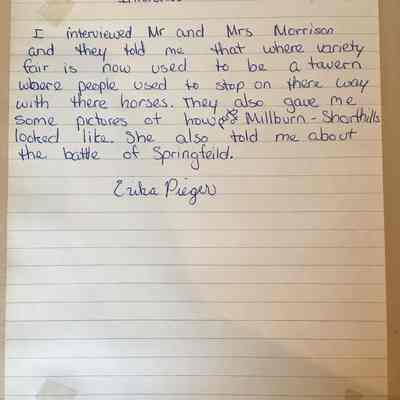 I interviewed Mr and Mrs Morrison
and they told me that where variety
fair is now used to be a tavern
where people used to stop on there way
with there horses. They also gave me
some pictures of how Millburn - Shorthills
looked like. She also told me about
the battle of Springfeild.
Erika Pieger